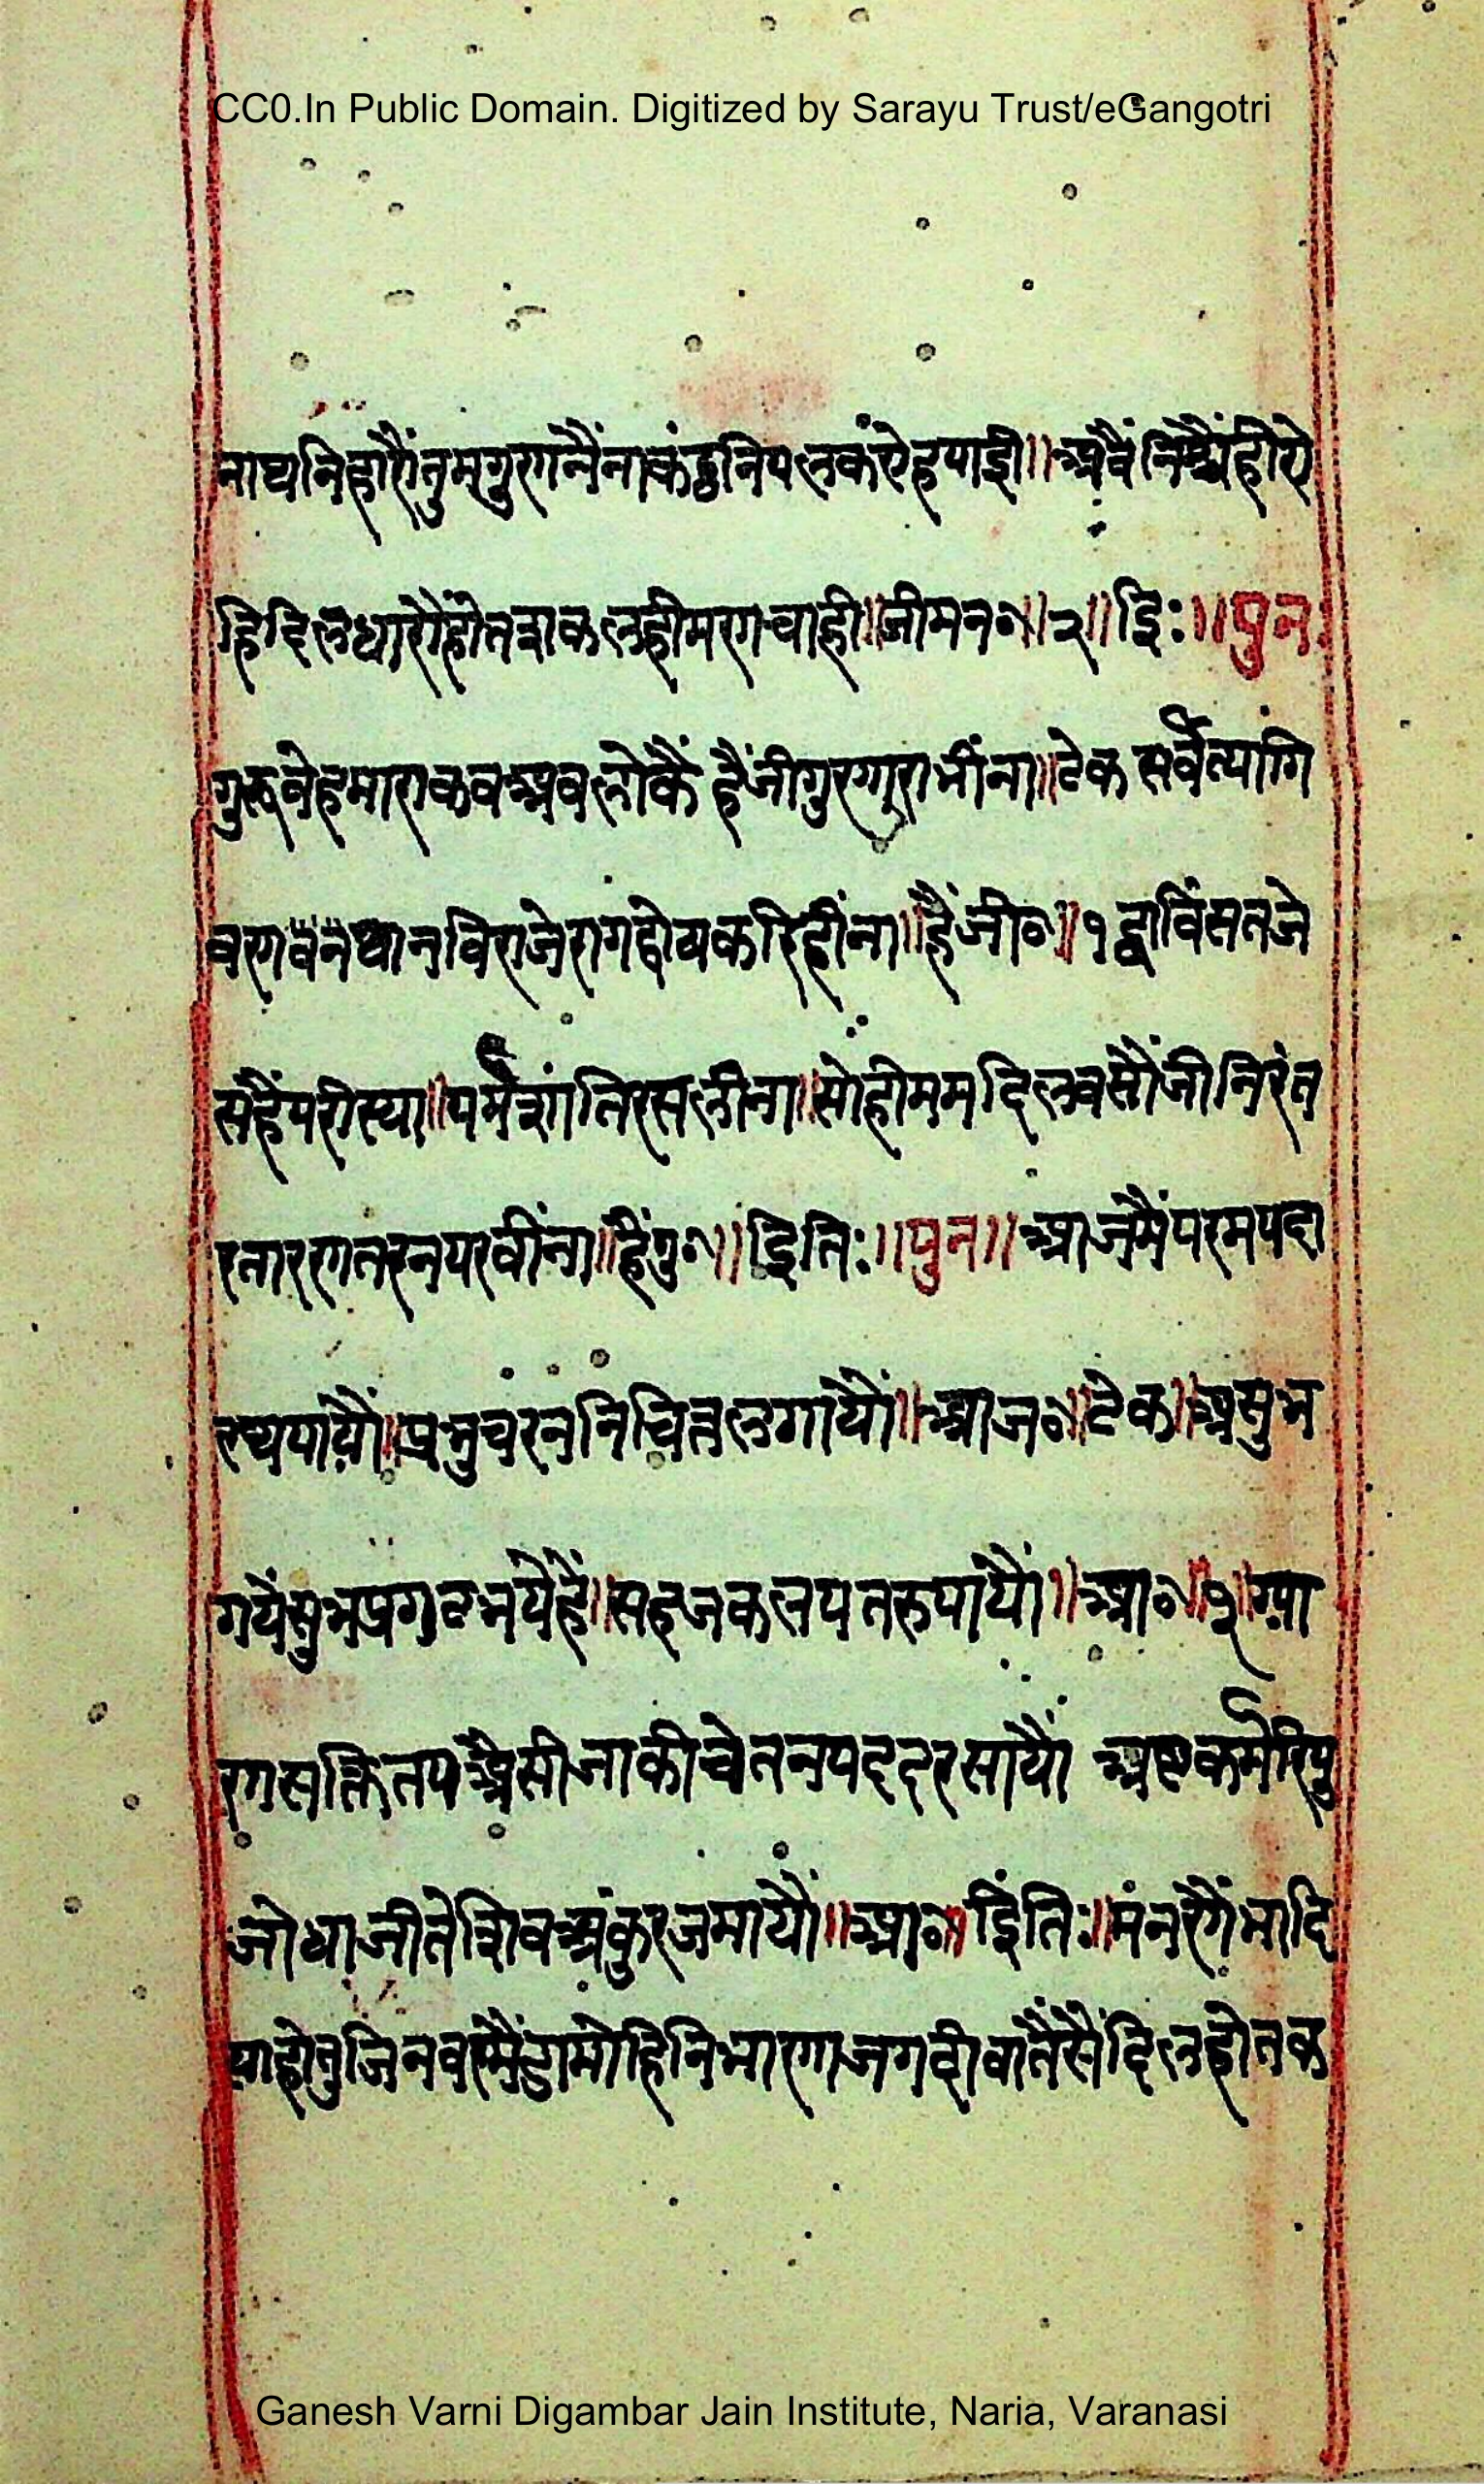 CC0.In Public Domain. Digitized by Sarayu Trust/eGangotri
नाथ निहारौं तुम गुरगनैंना कंठ निपलकं ऐह पाइ॥ अवैं निश्चैं हीये
हि दिलधारौ होत वाकलही मरग चाही॥ जी मन०॥२॥ इि:॥ पुन:
गुरु वे हमारा कव अवलोकैं हैं जी गुरग्गुरा भींना॥ टेक सर्व त्यागि
वरग वन ध्यान विराजे राग द्वोष करि हींना॥ हैं जी०॥१ द्वाविंसत जे
सहैं परीस्या॥ पर्म शांति रस लीना॥ सो ही मम दिल वसौं जी निरंत
र तारग तरन परवींना॥ हैं गु०॥ इिति:॥ पुन॥ आज मैं परम पदा
रथ पायौं॥ प्रभु चरननि चित लगायौं॥ आज०॥ टेक॥ असुभ
गयें सुभ प्रगट भये हैं॥ सहज कलपतरु पायौं॥ आ०॥१॥ ग्या
रग सक्ति तप अैसी जाकी चेतन पद दरसायौं अष्ट कर्म रिपु
जोधा जीते शिव अंकुर जमायौं॥ आ०॥ इिंति:॥ मंन रंगैं भादि
या हो तु जिनवर मैंडा मोहि निभारग्ग जग वी वातैं सैं दिल होत क
Ganesh Varni Digambar Jain Institute, Naria, Varanasi